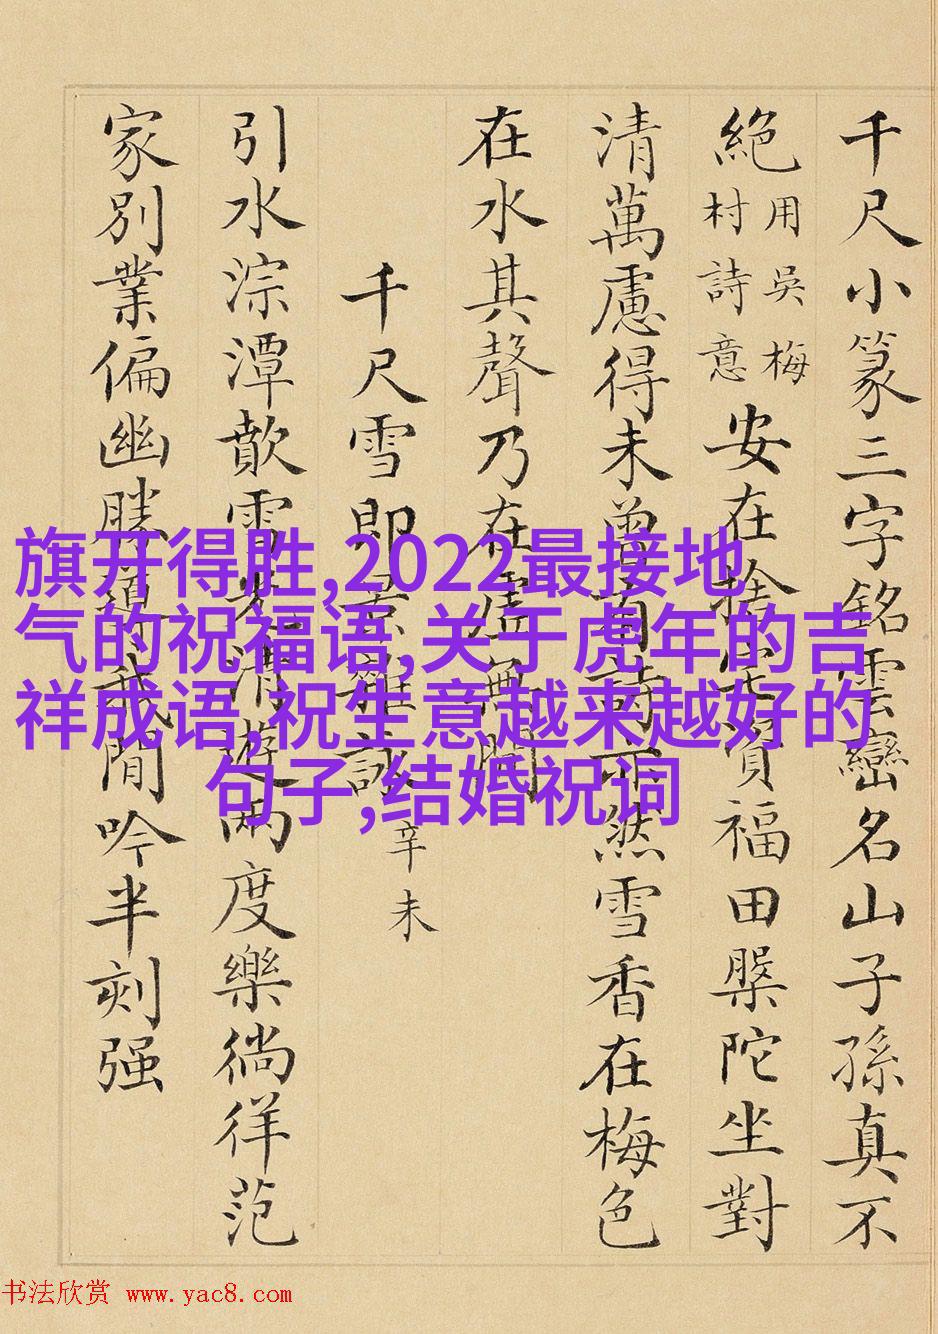 千尺小篆三字銘雲巒名山子孫真不
絕
用吳梅
村詩意
安在捨宅福田槃陀坐對
清萬慮得未曾有然雪香在梅色
在水其聲乃在虛無間
千尺雪即景雜詠
辛未
引水淙潭歕雪清遊兩度樂徜徉范
家別業偏幽勝須閒吟半刻强
旗开得胜,2022最接地
气的祝福语,关于虎年的吉
祥成语,祝生意越来越好的
句子,结婚祝词
书法欣赏 www.yac8.com